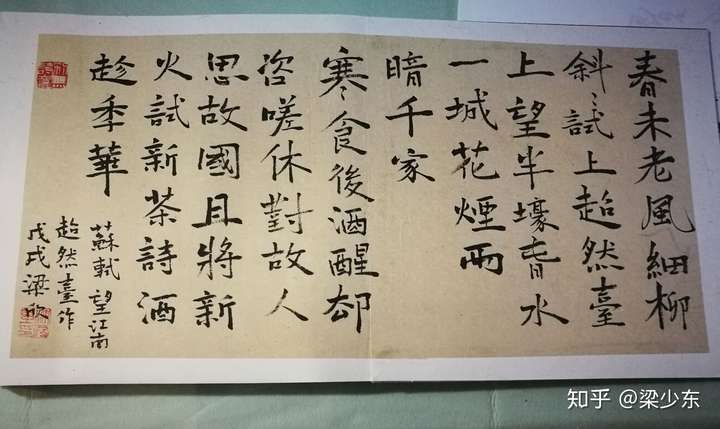 春未老風細柳
斜〻試上超然臺
上望半壕旾水
一城花煙雨
暗千家
寒食後酒醒却
咨嗟休對故人
思故國且將新
火試新茶詩酒
趁秊華
蘇軾望江南
超然臺作
戊戌梁欣
知乎 @梁少东